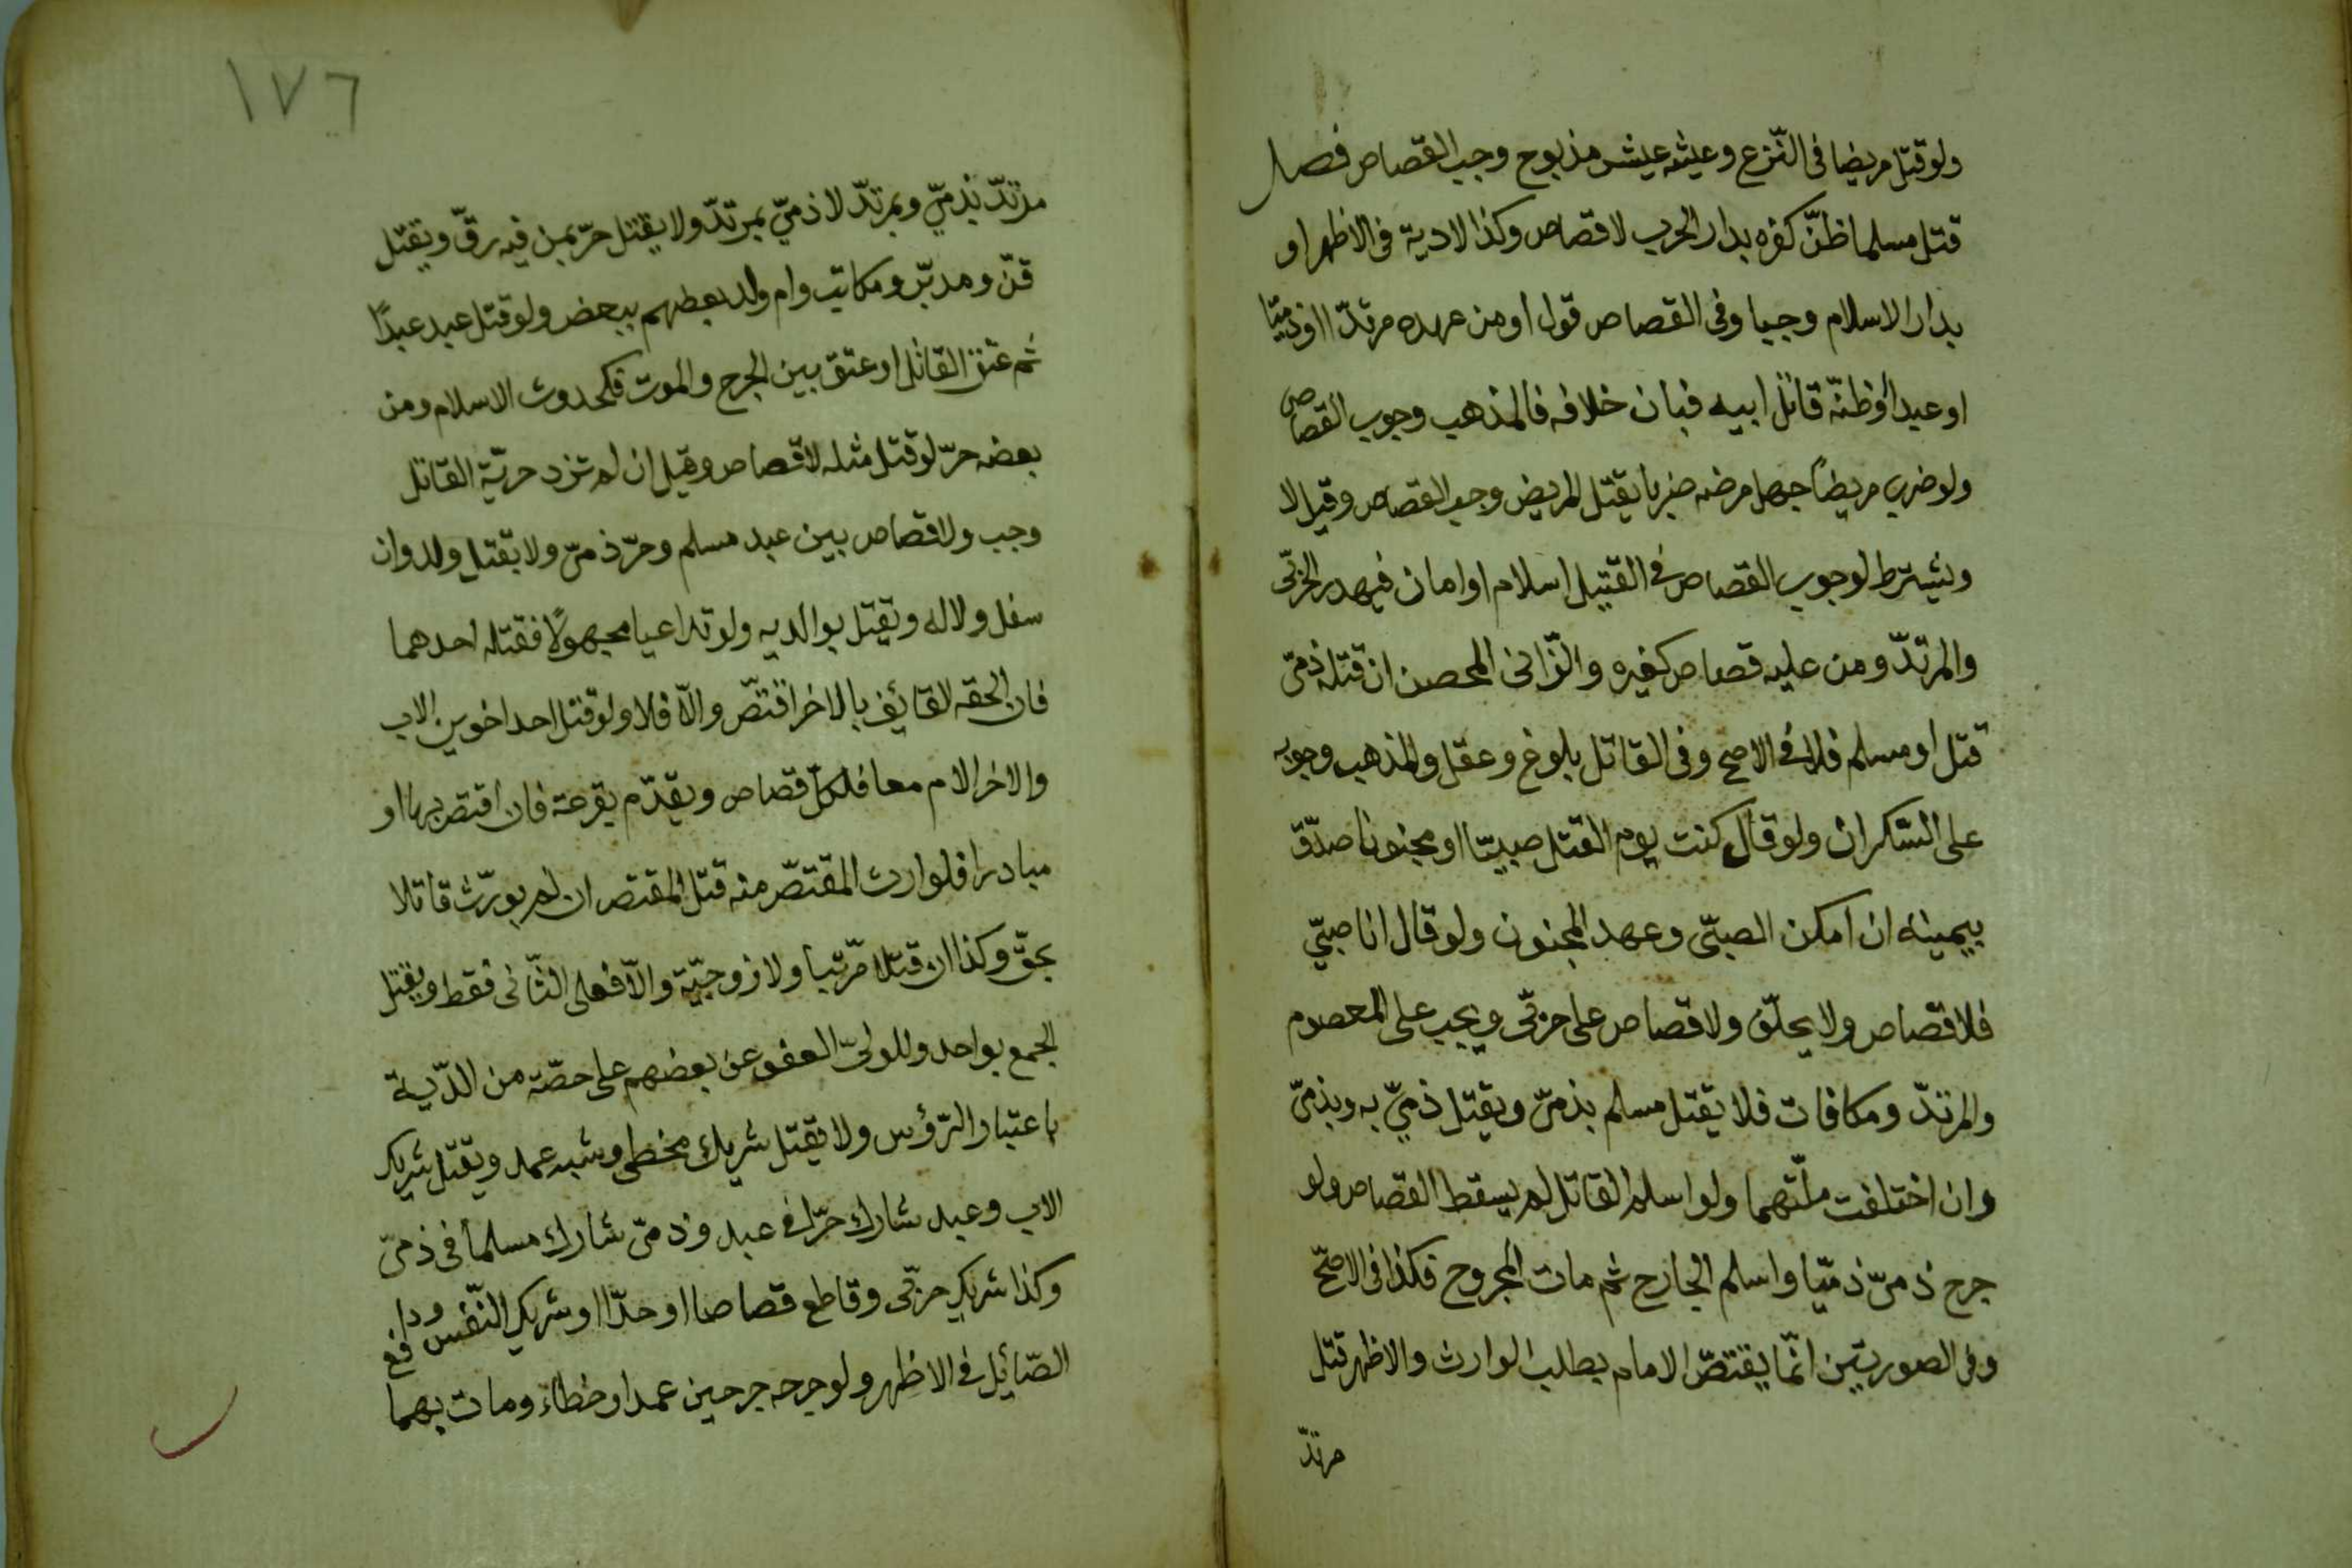 ولو قتل مريضا فى النّزع وعيشه عيش مذبوح وجب القصاص فصل
قتل مسلما ظنّ كفره بدار الحرب لا قصاص وكذا لا دية فى الاظهر او
بدار الاسلام وجبا وفى القصاص قول او من عهده مرتدّا او ذميّا
او عبدا او ظنّه قاتل ابيه فبان خلافه فالمذهب وجوب القصاص
ولو ضرب مريضًا جهل مرضه ضربا يقتل المريض وجب القصاص وقيل لا
ويشترط لوجوب القصاص فى القتيل اسلام او امان فيهدر الحربّى
والمرتدّ ومن عليه قصاص كغيره والزّانى المحصن ان قتله ذمىّ
قتل او مسلم فلا فى الاصح وفى القاتل بلوغ وعقل والمذهب وجوبه
على السّكران ولو قال كنت يوم القتل صبيّا او مجنونا صدّق
بيمينه ان امكن الصبىّ وعهد الجنون ولو قال انا صبىّ
فلا قصاص ولا يحلّف ولا قصاص على حربّى ويجب على المعصوم
والمرتدّ ومكافات فلا يقتل مسلم بذمىّ ويقتل ذمىّ به وبذمىّ
وان اختلفت ملّتهما ولو اسلم القاتل لم يسقط القصاص ولو
جرح ذمىّ ذميّا واسلم الجارح ثم مات المجروح فكذا فى الاصحّ
وفى الصورتين انّما يقتصّ الامام بطلب الوارث والاظهر قتل
مرتدّ
١٧٦
مرتدّ بذمىّ وبمرتدّ لا ذمىّ بمرتدّ ولا يقتل حرّ بمن فيه رقّ ويقتل
قنّ ومدبّر ومكاتب وام ولد بعضهم ببعض ولو قتل عبد عبدًا
ثم عتق القاتل او عتق بين الجرح والموت فكحدوث الاسلام ومن
بعضه حرّ لو قتل مثله لا قصاص وقيل ان لم تزد حريّة القاتل
وجب ولا قصاص بين عبد مسلم وحرّ ذمىّ ولا بقتل ولد وان
سفل ولا له ويقتل بوالديه ولو تداعيا مجهولًا فقتله احدهما
فان الحقه القائف بالاخر اقتصّ والّا فلا ولو قتل احد اخوين الاب
والاخر الام معا فلكلّ قصاص ويقدّم بقرعة فان اقتص بها او
مبادرا فلوارث المقتصّ منه قتل المقتص ان لم يورّث قاتلا
بحقّ وكذا ان قتلا مرّتبا ولا زوجيّة والّا فعلى الثّانى فقط ويقتل
الجمع بواحد وللولىّ العفو عن بعضهم على حصّة من الدّية
باعتبار الرّؤس ولا يقتل شريك مخطى وشبه عمد ويقتل شريك
الاب وعبد شارك حرّا فى عبد وذمىّ شارك مسلما فى ذمىّ
وكذا شريك حربّى وقاطع قصاصا او حدّا او شريك النّفس ودافع
الصّائل فى الاظهر ولو جرحه جرحين عمدا وخطاء ومات بهما